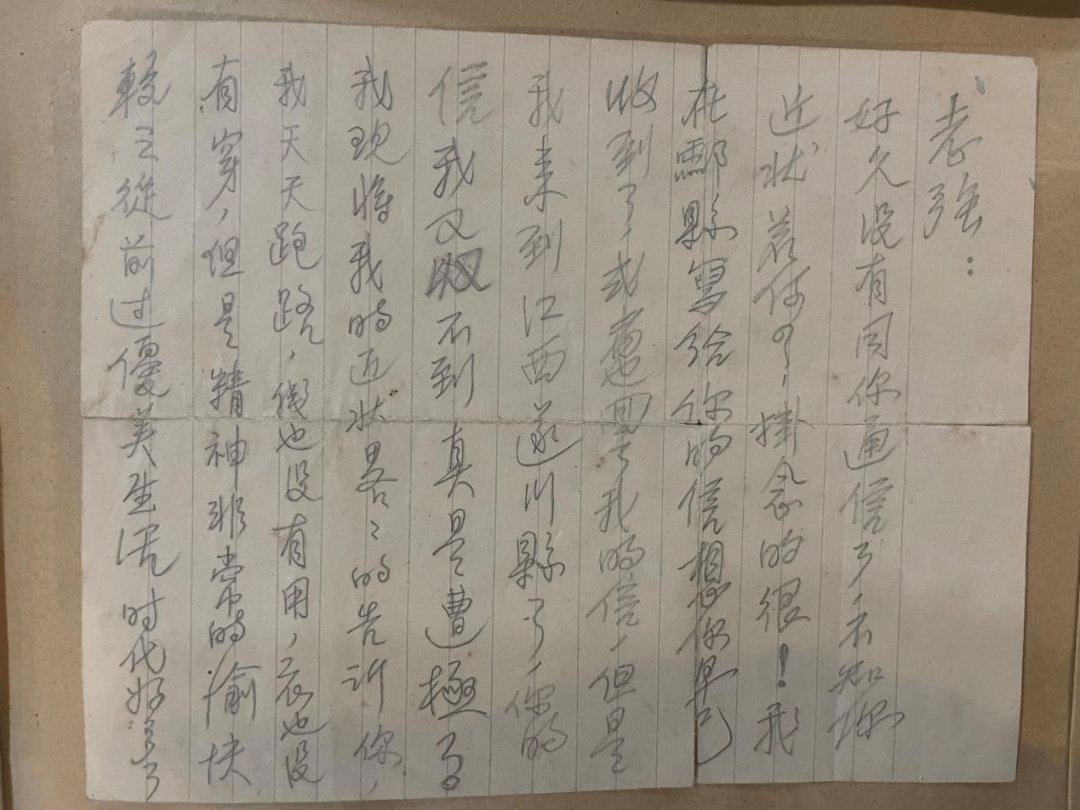 志強：
好久没有同你通信了，不知你
近状若何？掛念的很！我
在酃縣寫给你的信想你早已
收到了，或者也囬了我的信，但是
我来到江西遂川縣了，你的
信我又收不到真是遭極了
我現將我的近状畧〻的告訴你，
我天天跑路，錢也没有用，衣也没
有穿，但是精神非常的愉快
較之從前过優美生活时代好多了